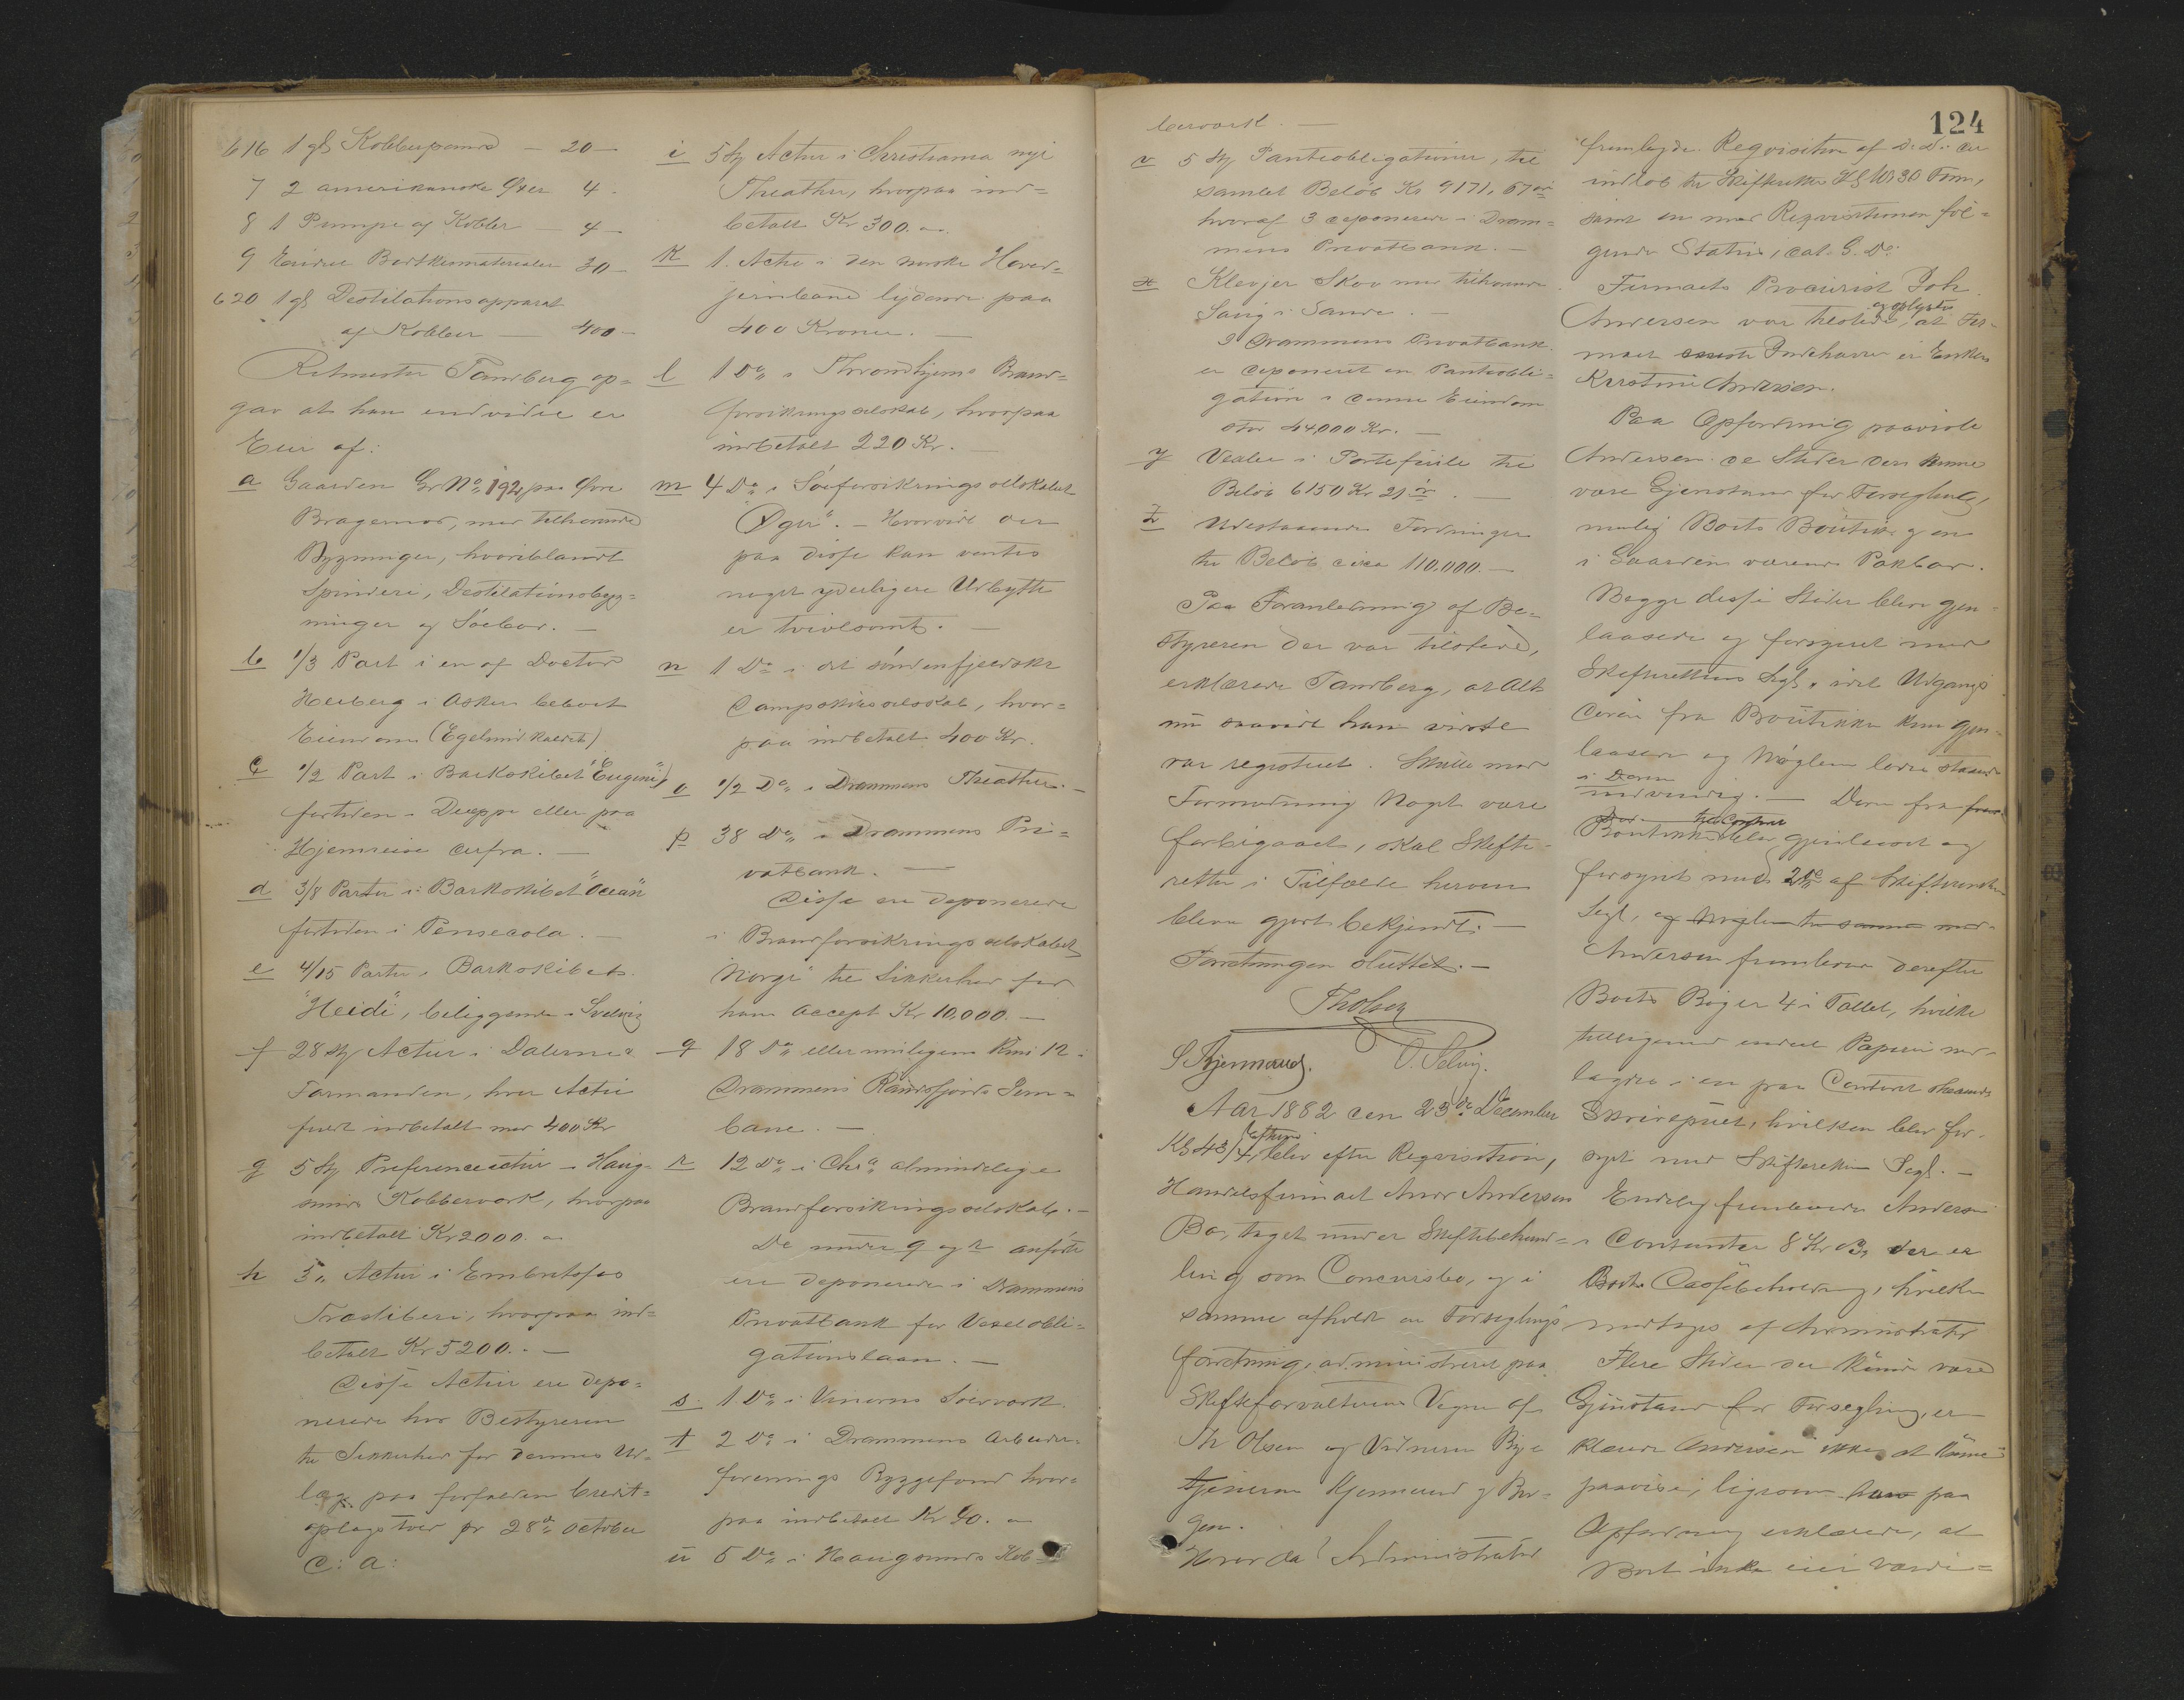 616 1 gl Kobberpande — 20 —
7 2 amerikanske Øxer 4 -
8 1 Pumpe af Kobber — 4 —
9 Endeel Bødkermaterialer 30 —
620 1 gl Destilationsapparat
af Kobber — 400 —
Ritmester Tandberg op=
gav at han endvidere er
Eier af:
a Gaarden Gr No 192 paa Øvre
Bragernes, med tilhørende
Bygninger, hvoriblandt
Spinderi, Destilationsbyg=
ninger og Søebod. —
b 1/3 Part i en af Doctor
Heiberg i Asker beboet
Eiendom (Egelund kaldet)
c 1/2 Part i Barkskibet "Eugenie"
fortiden i Dieppe eller paa
Hjemreise derfra. —
d 3/8 Parter i Barkskibet "Ocean"
fortiden i Pensecola. —
e 4/15 Parter i Barkskibet
"Heidi", beliggende i Svelvig
f 28 St Actier i Dalerne &
Formanden, hver Actie
fuldt indbetalt med 400 Kr
g 5 St Preferenceactier i Haug=
sunds Kobberværk, hvorpaa
indbetalt Kr 2000. —
h 5 „ Actier i Embretsfos
Træsliberi, hvorpaa ind=
betalt Kr 5200. —
Disse Actier ere depo=
nerede hos Bestyreren
til Sikkerhed for dennes Ud-
læg paa forfalden Credit=
oplagstold pr 28de October
d: A:
i 5 St Actier i Christiania nye
Theather, hvorpaa ind=
betalt Kr 300. —
k 1. Actie i den norske Hoved=
jernbane lydende paa
400 Kroner. —
l 1 Do i Throndhjems Brand=
forsikringsselskab, hvorpaa
indbetalt 220 Kr. —
m 4 Do i Søeforsikringsselskabet
"Øger". — Hvorvidt der
paa disse kan ventes
noget yderligere Udbytte
er tvivlsomt. —
n 1 Do i det søndenfjeldske
Dampskibsselskab, hvor=
paa indbetalt 400 Kr.
o 1/2 Do i Drammens Theather. —
p 38 Do i Drammens Pri=
vatbank. —
Disse ere deponerede
i Brandforsikringsselskabet
"Norge" til Sikkerhed for
hans Accept Kr 10,000. —
q 18 Do eller muligens kun 12 i
Drammens Randsfjords Jern=
bane. —
r 12 Do i Chra almindelige
Brandforsikringsselskab. —
De under q og r anførte
ere deponerede i Drammens
Privatbank for Vexelobli=
gationslaan. —
s. 1 Do i Sølvværk.
t 2 Do i Drammens Arbeider-
forenings Byggefond hvor=
paa indbetalt Kr 40. —
u 5 Do i Haugsunds Kob=
berværk. —
v 5 St Pantieobligationer, til
samlet Beløb Kr 9171, 67 ør
hvoraf 3 deponerede i Dram=
mens Privatbank. —
x Klevjer Skov med tilhørende
Saug i Sande. —
I Drammens Privatbank
er deponeret en Pantiobli=
gation i denne Eiendom
stor 44,000 Kr. —
y Vexler i Portefeuile til
Beløb 6150 Kr 21 ør. —
z Udestaaende Fordringer
til Beløb circa 110,000. —
Paa Foranledning af Be=
styreren der var tilstede,
erklærede Tandberg, at Alt
nu saavidt han vidste
var registreret. Skulle mod
Formodning Noget være
forbigaaet, skal Skifte-
retten i Tilfælde herom
blive gjort bekjendt. —
Forretningen sluttet. —
Th Olsen
S. Kjennerud. O. Selvig.
Aar 1882 den 23de December
Kl 4 3/4 Efterm blev efter Reqvisition,
Handelsfirmaet Andr Andersen
Bo, taget under Skiftebehand=
ling som Concursbo, og i
samme afholdt en Forseglings
forretning, administreret paa
Skifteforvalterens Vegne af
Th Olsen og Vidnerne Bye
tjenerne Kjennerud og Ber=
gen.
Hvorda? Administrator
124
fremlagde Reqvisition af D. D. der
indløb til Skifteretten Kl 30 Form,
samt en med Reqvisitionen føl=
gende Status, dat. S. D.
Firmaets Procurist Joh
Andersen var tilstede, og oplyste at Fir-
maet eneste Indehaver er Enken
Kirstine Andersen.
Paa Opfordring paaviste
Andersen de Steder der kunne
være Gjenstand for Forsegling,
nemlig Boets Boutik og en
i Gaarden værende Pakbod.
Begge disse Steder bleve gjen=
laasede og forsynet med
Skifterettens Segl, idet Udgangs
døren fra Boutikken kun gjen-
laasedes og Nøglen lodes staaende
i Døren
indvendig. — Døren fra
Boutikken til Contoret blev gjenlaast og
forsynt med 2de af Skifterettens
Segl, og Nøglen til samme med-
Andersen fremleverede derefter
Boets Bøger 4 i Tallet, hvilke
tilligemed endeel Papirer ned-
lagdes i en paa Contoret staaende
Skrivepult, hvilken blev for-
synt med Skifterettens Segl. —
Endelig fremleverede Andersen
i Contanter 8 Kr 03, der er
Boets Cassebeholdning, hvilken
modtoges af Administrator
Flere Steder der kunde være
Gjenstand for Forsegling, er
klærede Andersen ikke at kunne
paavise, ligesom han paa
Opfordring erklærede, at
Boet ikke eier værdi=